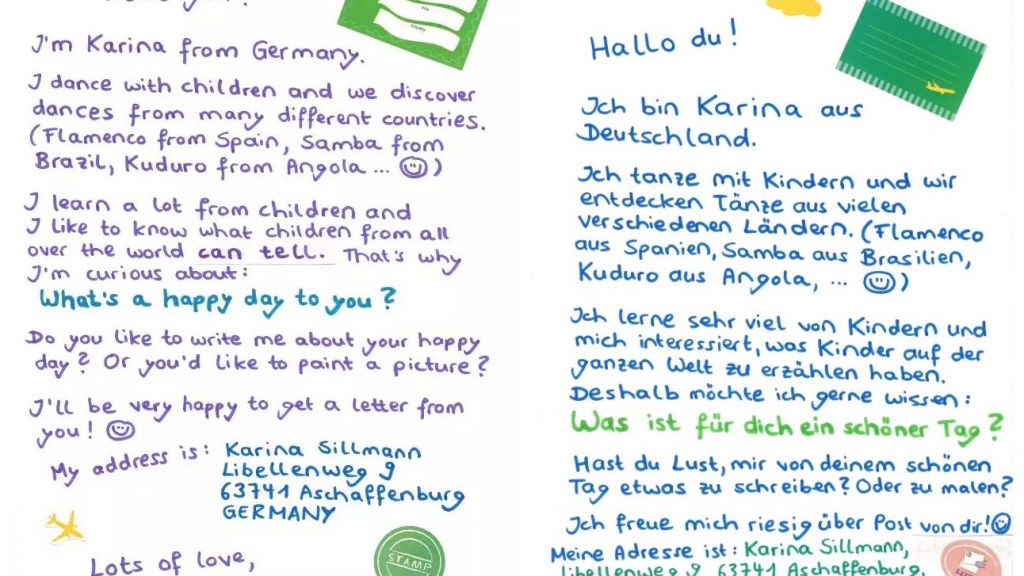 you?
I'm Karina from Germany.
I dance with children and we discover
dances from many different countries.
(Flamenco from Spain, Samba from
Brazil, Kuduro from Angola ... ☺)
I learn a lot from children and
I like to know what children from all
over the world can tell. That's why
I'm curious about:
What's a happy day to you?
Do you like to write me about your happy
day? Or you'd like to paint a picture?
I'll be very happy to get a letter from
you! ☺
My address is: Karina Sillmann
Libellenweg 9
63741 Aschaffenburg
GERMANY
Lots of love,
STAMP
city
country
Hallo du!
Ich bin Karina aus
Deutschland.
Ich tanze mit Kindern und wir
entdecken Tänze aus vielen
verschiedenen Ländern. (Flamenco
aus Spanien, Samba aus Brasilien,
Kuduro aus Angola, ... ☺)
Ich lerne sehr viel von Kindern und
mich interessiert, was Kinder auf der
ganzen Welt zu erzählen haben.
Deshalb möchte ich gerne wissen:
Was ist für dich ein schöner Tag?
Hast du Lust, mir von deinem schönen
Tag etwas zu schreiben? Oder zu malen?
Ich freue mich riesig über Post von dir! ☺
Meine Adresse ist: Karina Sillmann,
Libellenweg 9, 63741 Aschaffenburg,